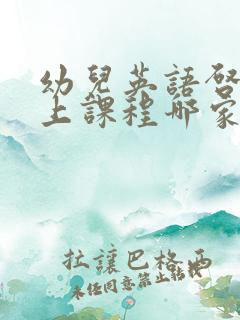 幼兒英語啓
上課程哪家
拉讓巴格西
未经同意禁止转载